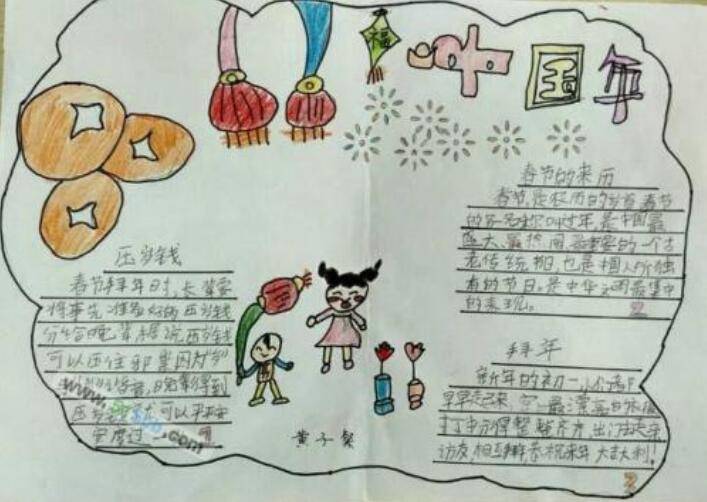 福
中国年
春节的来历
春节,是农历的岁首,春节
的另一名称叫过年,是中国最
盛大、最热闹、最重要的一个古
老传统节日,也是中国人所独
有的节日。是中华文明最集中
的表现。
压岁钱
春节拜年时,长辈要
将事先准备好的压岁钱
分给晚辈,据说压岁钱
可以压住邪祟,因为"岁"
晚辈得到
压岁钱 可以平平安安
度过一
1
拜年
新年的初一,人们
早早起来,穿 最漂亮的衣服
打扮得整整齐齐,出门去走亲
访友,相互拜年,恭祝来年大吉大利!
2
黄子
.com